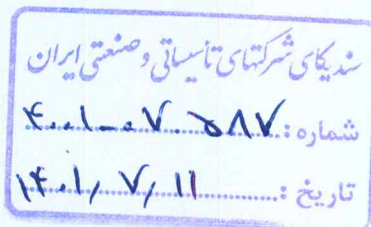 سندیکای شرکتهای تأسیساتی و صنعتی ایران
شماره: ۴۰۰۱-۰۷.۵۸۷
تاریخ: ۱۴۰۱/۷/۱۱